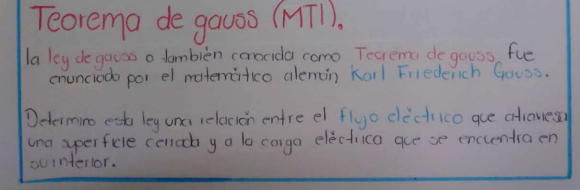 Teorema de gauss (MTI).
la ley de gauss o también conocida como Teorema de gauss fue
enunciado por el matemático alemán Karl Friederich Gauss.
Determina esta ley una relación entre el flujo eléctrico que atraviesa
una superficie cerrada y a la carga eléctrica que se encuentra en
su interior.